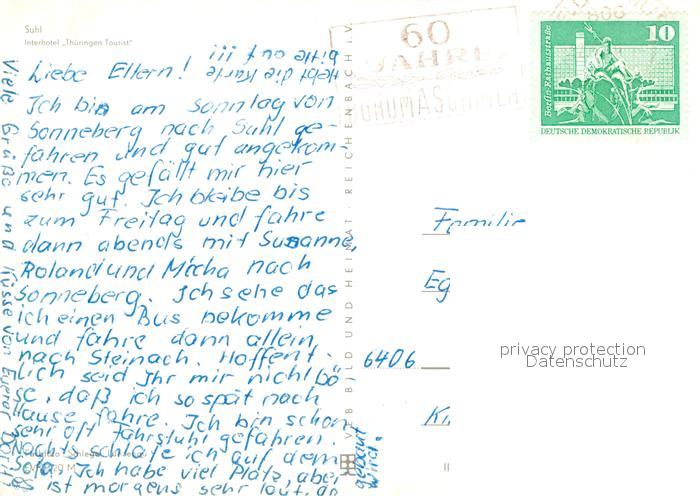 Suhl
Interhotel „Thüringen Tourist"
Hebt die Karte
bitte auf !!!
Liebe Eltern!
Ich bin am Sonntag von
Sonneberg nach Suhl ge-
fahren und gut angekom-
men. Es gefällt mir hier
sehr gut. Ich bleibe bis
zum Freitag und fahre
dann abends mit Susanne,
Roland und Micha nach
Sonneberg. Ich sehe das
ich einen Bus bekomme
und fahre dann allein
nach Steinach. Hoffent-
lich seid Ihr mir nicht bö
se, daß ich so spät nach
Hause fahre. Ich bin schon
sehr oft Fahrstuhl gefahren.
Nachts schlafe ich auf dem
Sofa. Ich habe viel Platz, aber
es ist morgens sehr laut, da
gebaut
wird.
Viele Grüße und Küsse von Eurer
VEB BILD UND HEIMAT · REICHENBACH i. V.
60
JAHRE
10
Berlin-Rathausstraße
DEUTSCHE DEMOKRATISCHE REPUBLIK
Familie
Eg
6406
privacy protection
Datenschutz